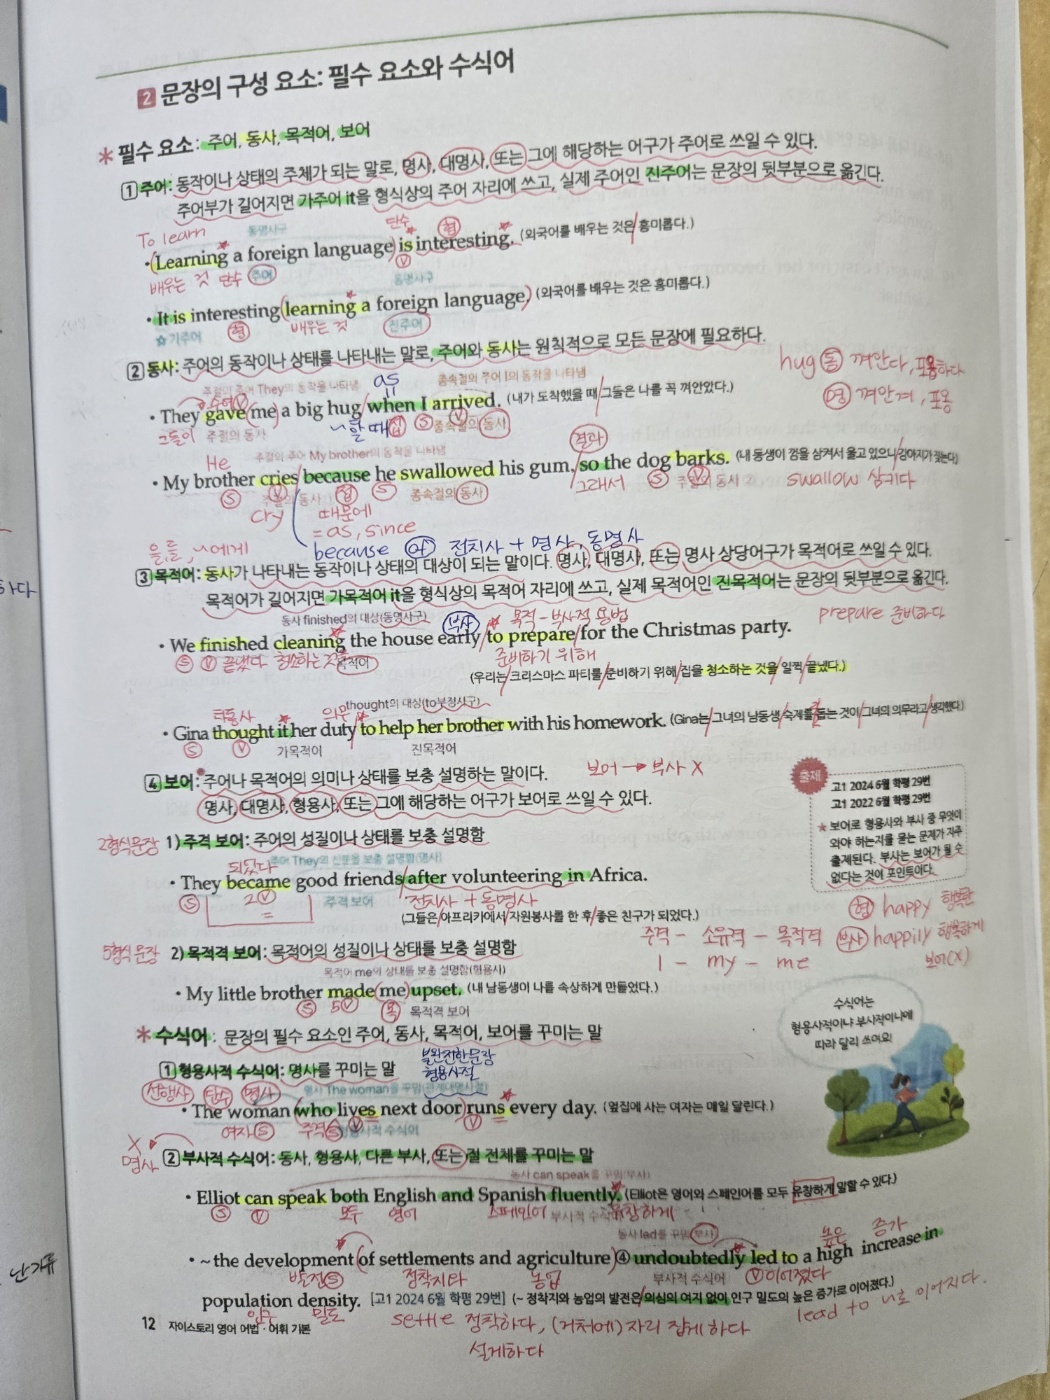 2 문장의 구성 요소: 필수 요소와 수식어
* 필수 요소: 주어, 동사, 목적어, 보어
1 주어: 동작이나 상태의 주체가 되는 말로, 명사, 대명사, 또는 그에 해당하는 어구가 주어로 쓰일 수 있다.
주어부가 길어지면 가주어 it을 형식상의 주어 자리에 쓰고, 실제 주어인 진주어는 문장의 뒷부분으로 옮긴다.
To learn 동명사구 단수 형
• (Learning a foreign language) is interesting. (외국어를 배우는 것은 흥미롭다.)
배우는 것 단수 주어 V
동명사구
• It is interesting (learning a foreign language) (외국어를 배우는 것은 흥미롭다.)
☆가주어 형 배우는 것 진주어
2 동사: 주어의 동작이나 상태를 나타내는 말로, 주어와 동사는 원칙적으로 모든 문장에 필요하다.
hug 동 껴안다, 포옹하다
주절의 주어 They의 동작을 나타냄 as 종속절의 주어 I의 동작을 나타냄
• They gave (me) a big hug / when I arrived. (내가 도착했을 때 그들은 나를 꼭 껴안았다.)
명 껴안기, 포옹
그들이 주절의 동사 ~할 때 접 S 종속절의 동사
결과
He 주절의 주어 My brother의 동작을 나타냄
• My brother cries because he swallowed his gum, so the dog barks. (내 동생이 껌을 삼켜서 울고 있으니 강아지가 짖는다)
S V 접 S 종속절의 동사 그래서 S 주절의 동사 swallow 삼키다
cry 때문에
= as, since
을,를, ~에게
because of 전치사 + 명사, 동명사
3 목적어: 동사가 나타내는 동작이나 상태의 대상이 되는 말이다. 명사, 대명사, 또는 명사 상당어구가 목적어로 쓰일 수 있다.
목적어가 길어지면 가목적어 it을 형식상의 목적어 자리에 쓰고, 실제 목적어인 진목적어는 문장의 뒷부분으로 옮긴다.
동사 finished의 대상(동명사구) 부사 목적-부사적 용법 prepare 준비하다
• We finished cleaning the house early / to prepare / for the Christmas party.
S V 끝냈다 청소하는 것을 목적어 준비하기 위해
(우리는 크리스마스 파티를 준비하기 위해 집을 청소하는 것을 일찍 끝냈다.)
타동사 의무 thought의 대상(to부정사구)
• Gina thought it her duty to help her brother with his homework. (Gina는 그녀의 남동생 숙제를 돕는 것이 그녀의 의무라고 생각했다.)
S V 가목적어 진목적어
4 보어: 주어나 목적어의 의미나 상태를 보충 설명하는 말이다. 보어 → 부사 X
명사, 대명사, 형용사, 또는 그에 해당하는 어구가 보어로 쓰일 수 있다.
출제
고1 2024 6월 학평 29번
고1 2022 6월 학평 29번
* 보어로 형용사와 부사 중 무엇이
와야 하는지를 묻는 문제가 자주
출제된다. 부사는 보어가 될 수
없다는 것이 포인트이다.
2형식 문장 1) 주격 보어: 주어의 성질이나 상태를 보충 설명함
되었다 주어 They의 신분을 보충 설명함(명사)
• They became good friends / after volunteering in Africa.
S 2V = 주격 보어 전치사 + 동명사
(그들은 아프리카에서 자원봉사를 한 후 좋은 친구가 되었다.)
형 happy 행복한
주격 - 소유격 - 목적격
부사 happily 행복하게
I - my - me
보어(X)
5형식 문장 2) 목적격 보어: 목적어의 성질이나 상태를 보충 설명함
목적어 me의 상태를 보충 설명함(형용사)
• My little brother made (me) upset. (내 남동생이 나를 속상하게 만들었다.)
S 5V 목 목적격 보어
수식어는
형용사적이냐 부사적이냐에
따라 달리 쓰여요!
* 수식어: 문장의 필수 요소인 주어, 동사, 목적어, 보어를 꾸미는 말
1 형용사적 수식어: 명사를 꾸미는 말
불완전한문장
형용사절
선행사 단수 명사 명사 The woman을 꾸밈(관계대명사절)
• The woman (who lives next door) runs every day. (옆집에 사는 여자는 매일 달린다.)
여자 S 주격 V 형용사적 수식어 V
X 명사
2 부사적 수식어: 동사, 형용사, 다른 부사, 또는 절 전체를 꾸미는 말
동사 can speak를 꾸밈(부사)
• Elliot can speak both English and Spanish fluently. (Elliot은 영어와 스페인어를 모두 유창하게 말할 수 있다.)
S V 모두 영어 스페인어 부사적 수식어 유창하게
동사 led를 꾸밈(부사) 높은 증가
• ~ the development (of settlements and agriculture) ④ undoubtedly led to a high increase in
발전 S 정착지와 농업 부사적 수식어 V 이어졌다
population density. [고1 2024 6월 학평 29번] (~ 정착지와 농업의 발전은 의심의 여지 없이 인구 밀도의 높은 증가로 이어졌다.)
인구 밀도 settle 정착하다, (거처에) 자리 잡게 하다 lead to ~로 이어지다.
설계하다
12 자이스토리 영어 어법·어휘 기본